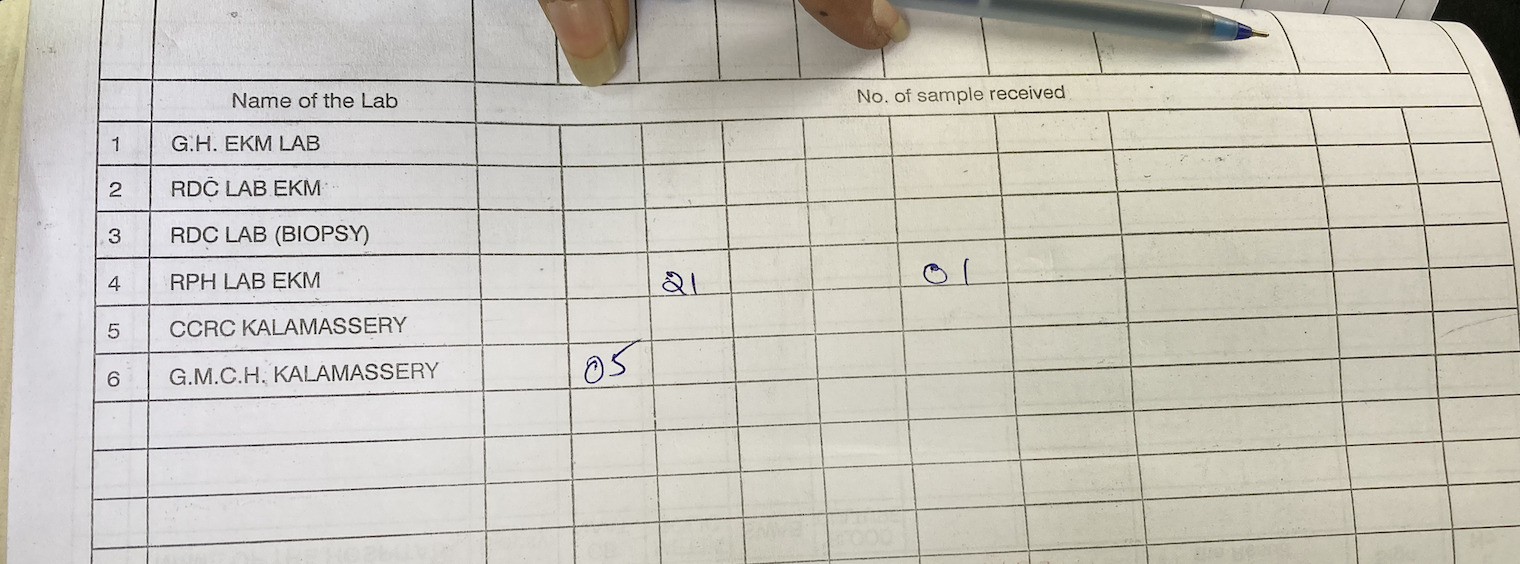 Name of the Lab No. of sample received
1 G.H. EKM LAB
2 RDC LAB EKM
3 RDC LAB (BIOPSY)
4 RPH LAB EKM 21 01
5 CCRC KALAMASSERY
6 G.M.C.H. KALAMASSERY 05